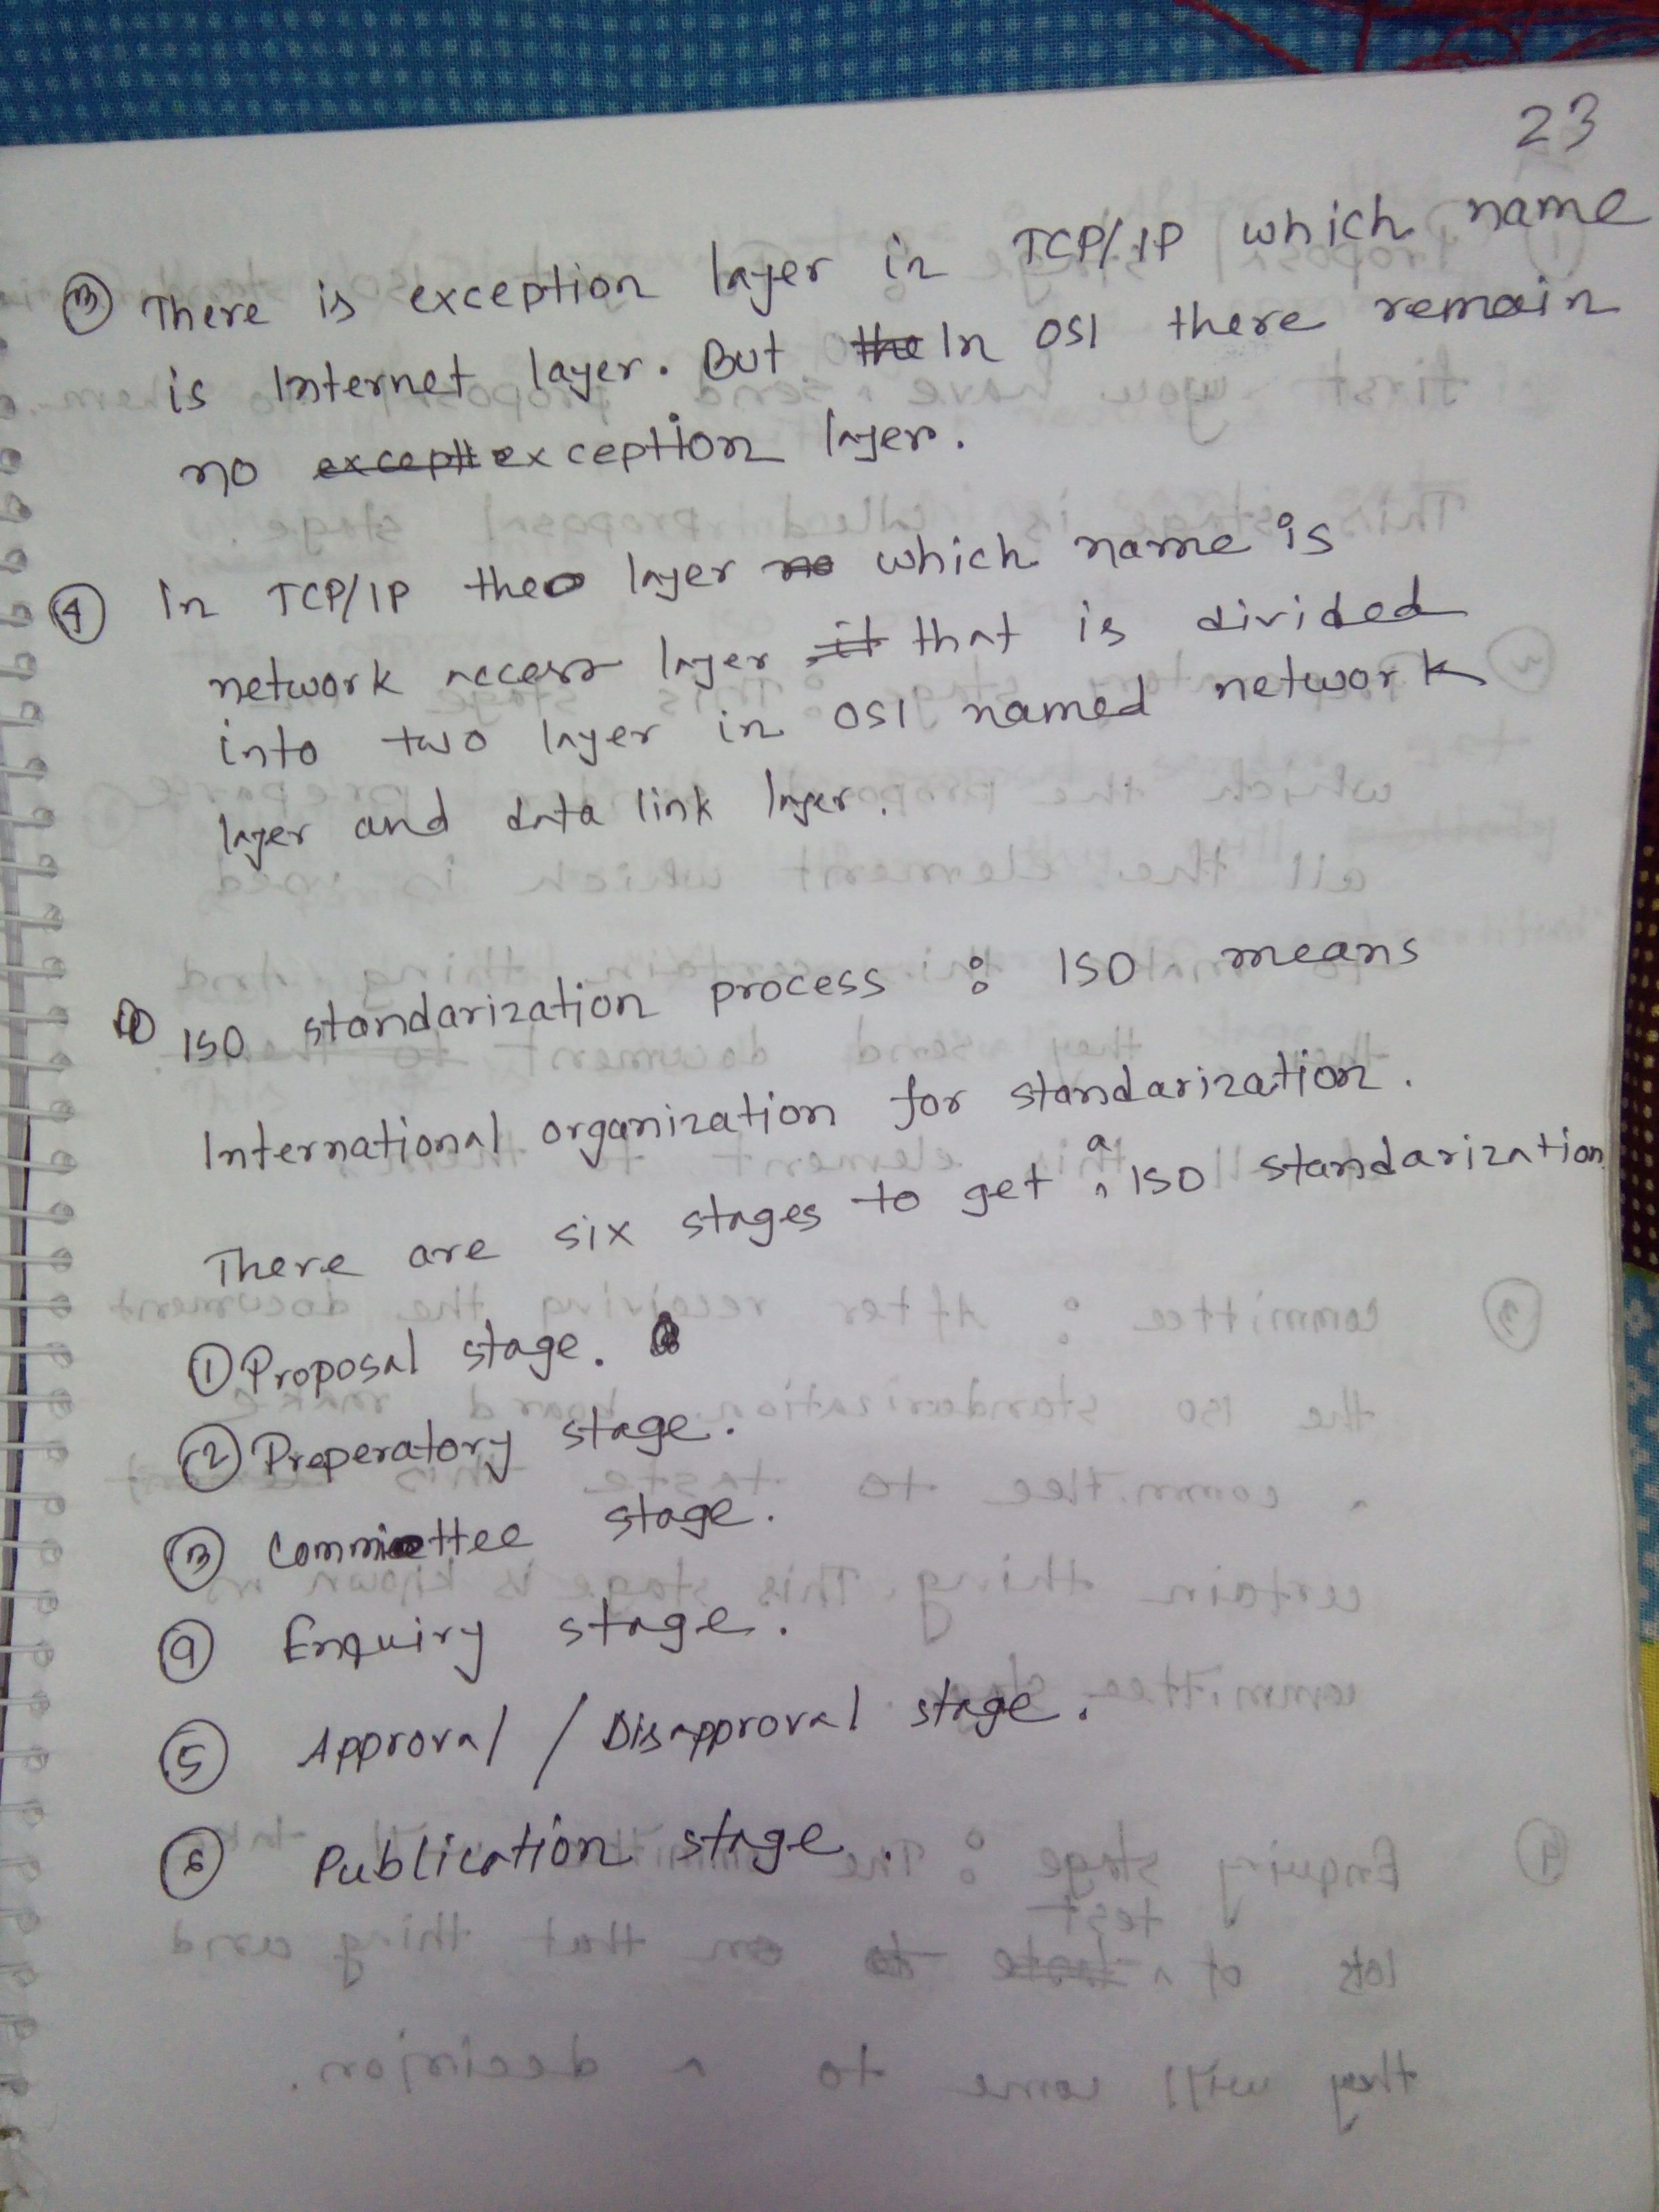 23
③ There is exception layer in TCP/IP which name
is Internet layer. But the In OSI there remain
no excepti exception layer.
④ In TCP/IP the layer no which name is
network access layer it that is divided
into two layer in OSI named network
layer and data link layer.
ISO standarization process : ISO means
International organization for standarization.
There are six stages to get a ISO standarization
① Proposal stage.
② Preperatory stage.
③ Committee stage.
④ Enquiry stage.
⑤ Approval / Disapproval stage.
⑥ Publication stage.